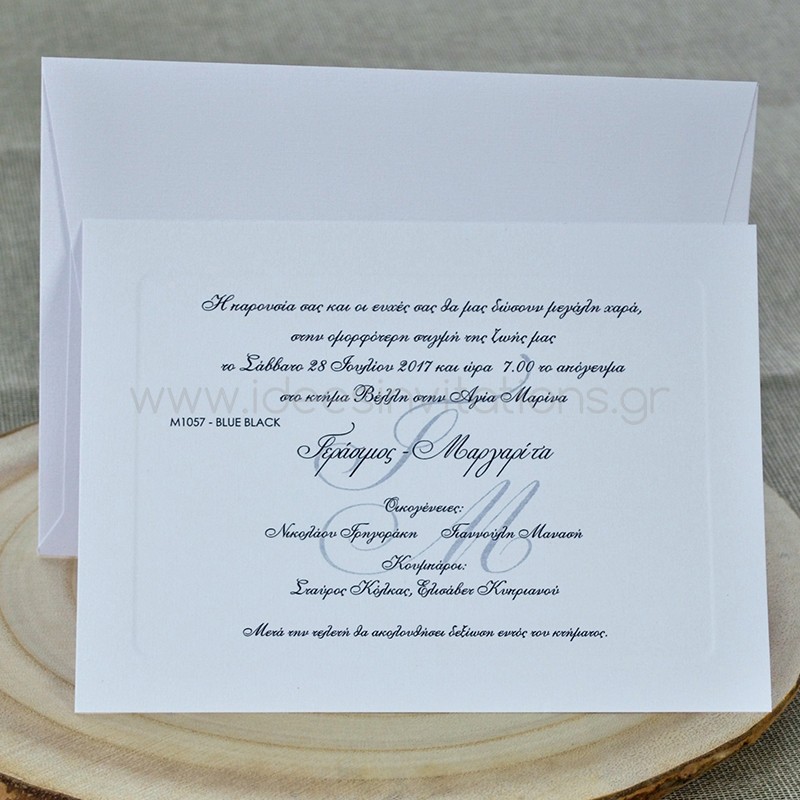 Η παρουσία σας και οι ευχές σας θα μας δώσουν μεγάλη χαρά,
στην ομορφότερη στιγμή της ζωής μας
το Σάββατο 28 Ιουλίου 2017 και ώρα 7.00 το απόγευμα
www.ideesinvitations.gr
στο κτήμα Βέλλη στην Αγία Μαρίνα
M1057 - BLUE BLACK
Γεράσιμος - Μαργαρίτα
Οικογένειες:
Νικολάου Γρηγοράκη Γιαννούλη Μανασή
Κουμπάροι:
Σταύρος Κόλκας, Ελισάβετ Κυπριανού
Μετά την τελετή θα ακολουθήσει δεξίωση εντός του κτήματος.